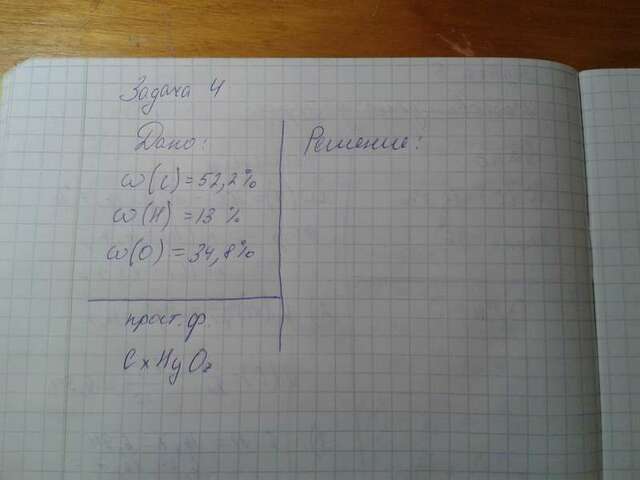 Задача 4
Дано:
ω(C) = 52,2%
ω(H) = 13 %
ω(O) = 34,8%
прост. ф.
CxHyOz
Решение: